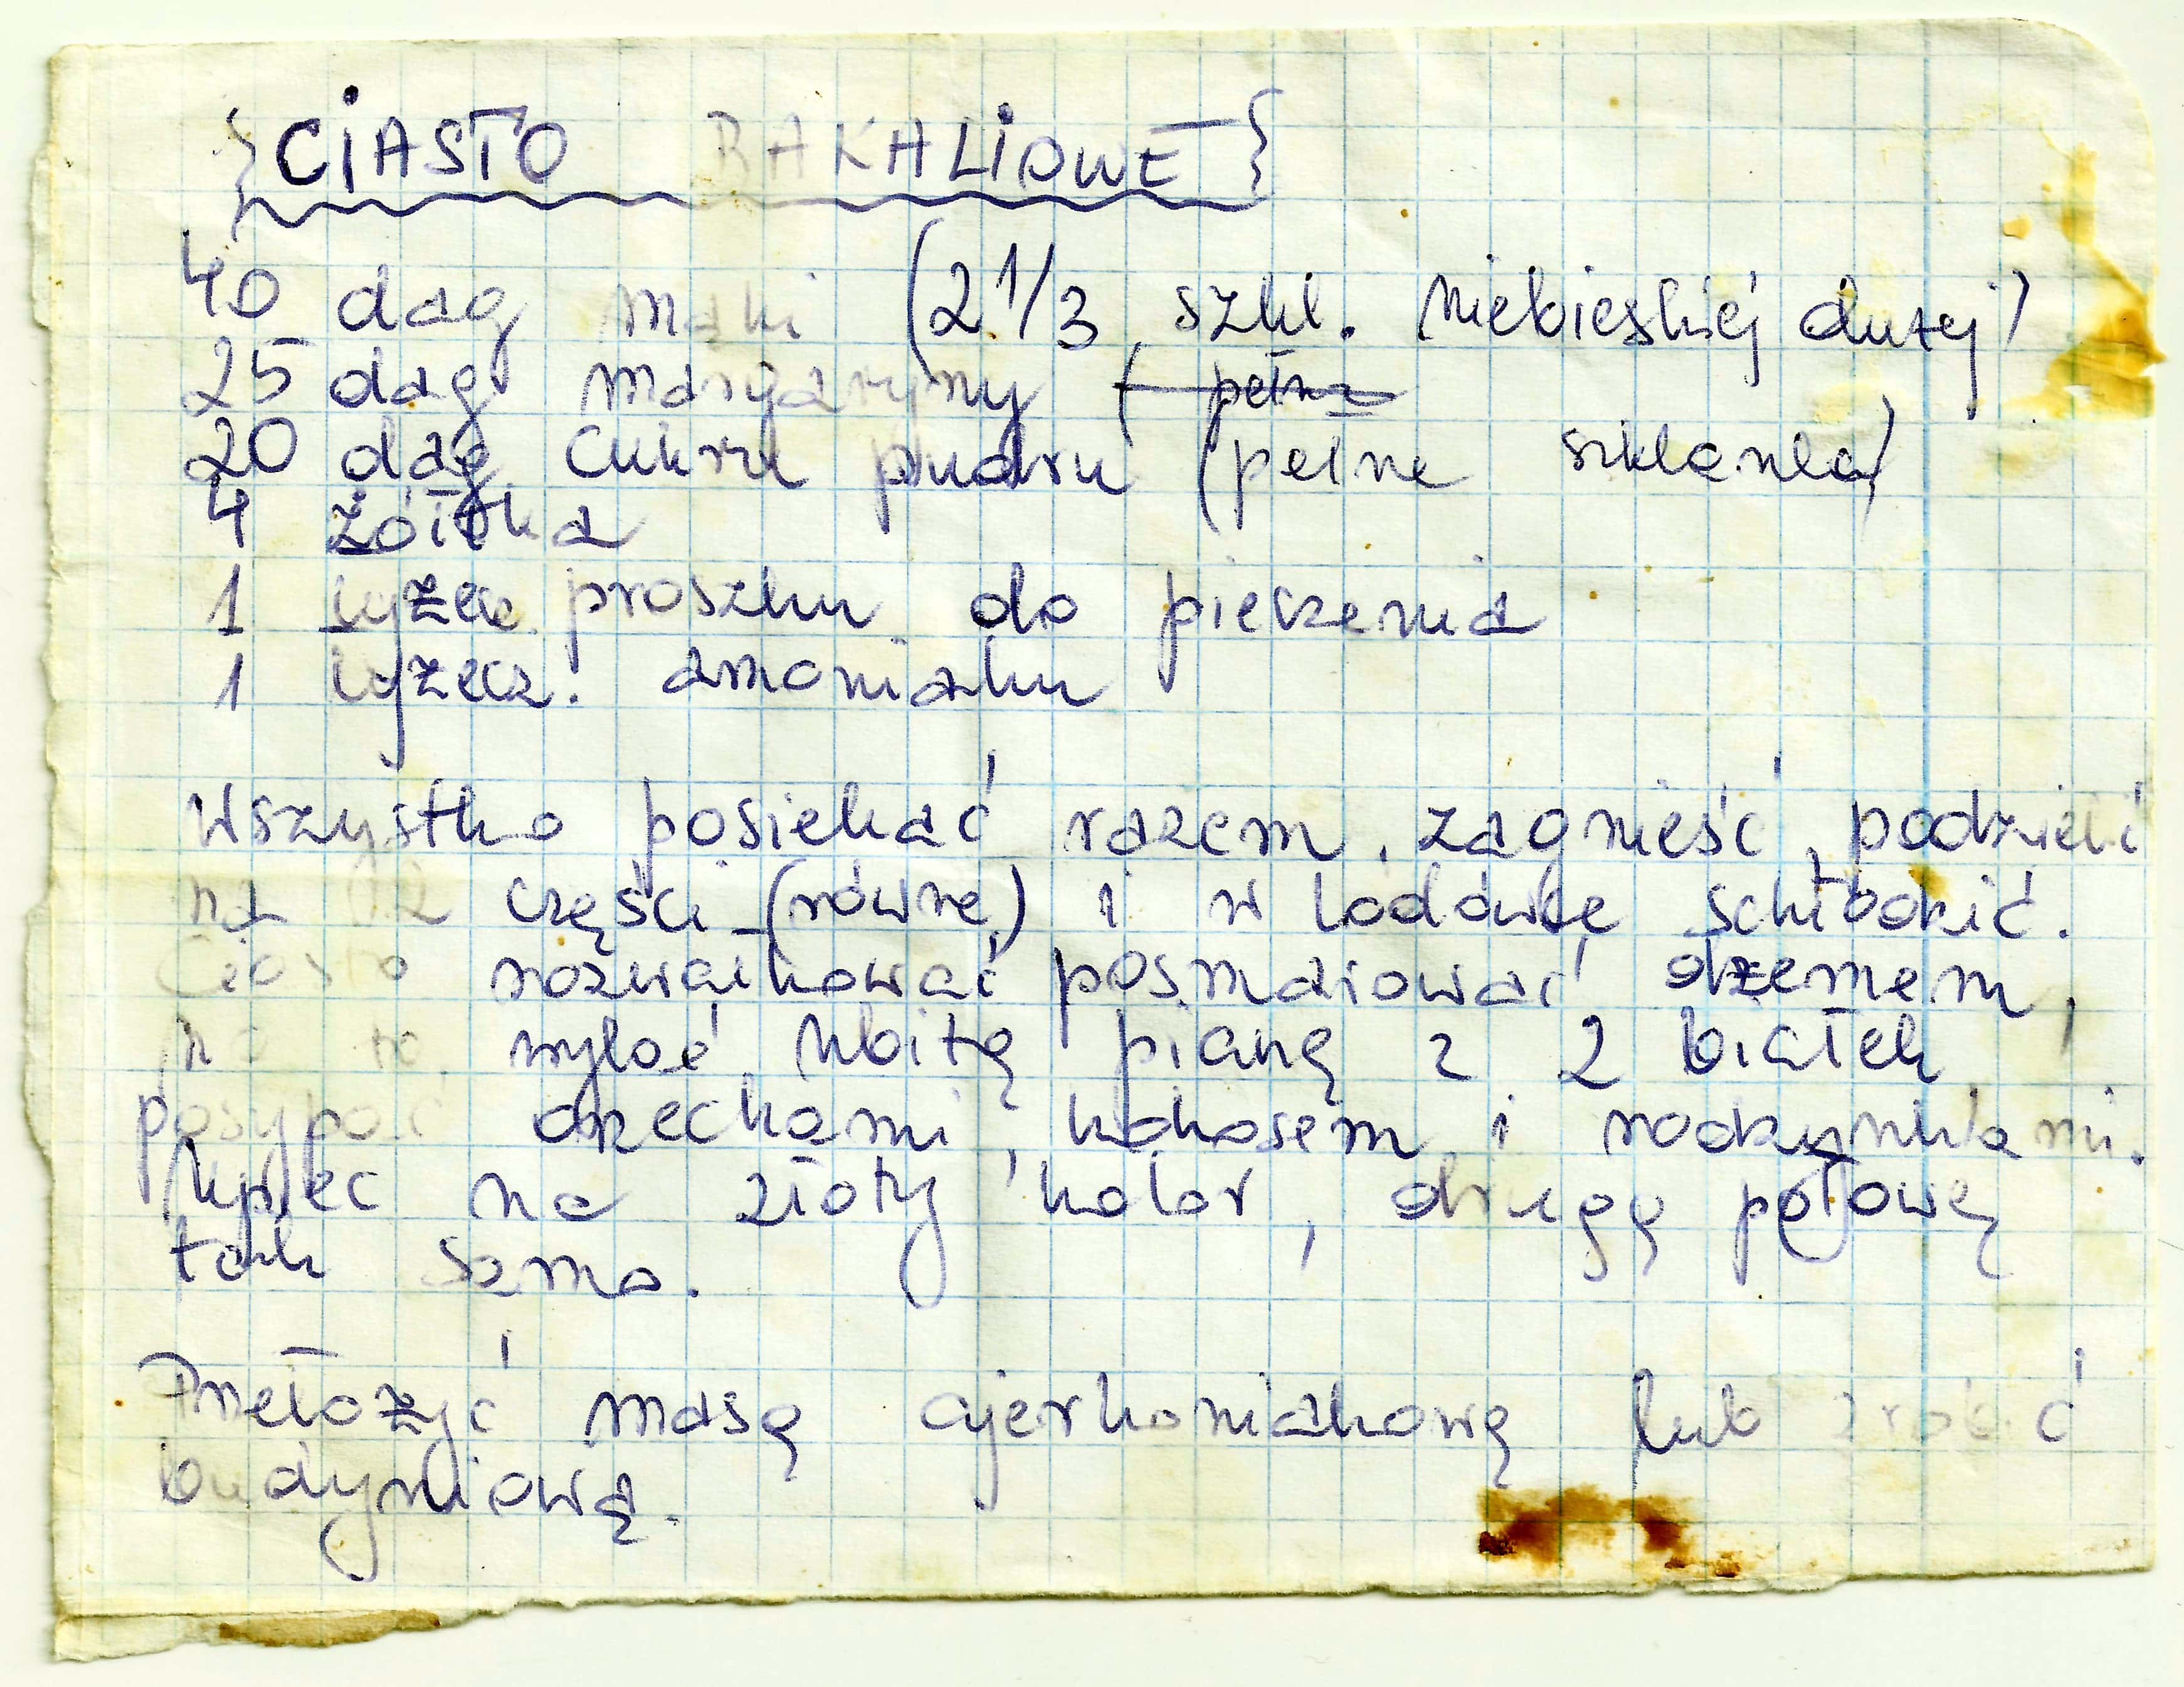 {CIASTO BAKALIOWE}
40 dag mąki (2 1/3 szkl. niebieskiej dużej)
25 dag margaryny (pełna
20 dag cukru pudru (pełna szklanka)
4 żółtka
1 łyżecz. proszku do pieczenia
1 łyżecz. amoniaku
Wszystko posiekać razem, zagnieść, podzielić
na 2 części (równe) i w lodówce schłodzić.
Ciasto rozwałkować posmarować dżemem,
na to wyłoć ubitą pianę z 2 białek,
posypać orzechami, kokosem i rodzynkami.
Upiec na złoty kolor, drugą połowę
tak samo.
Przełożyć masą ajerkoniakową lub zrobić
budyniową.